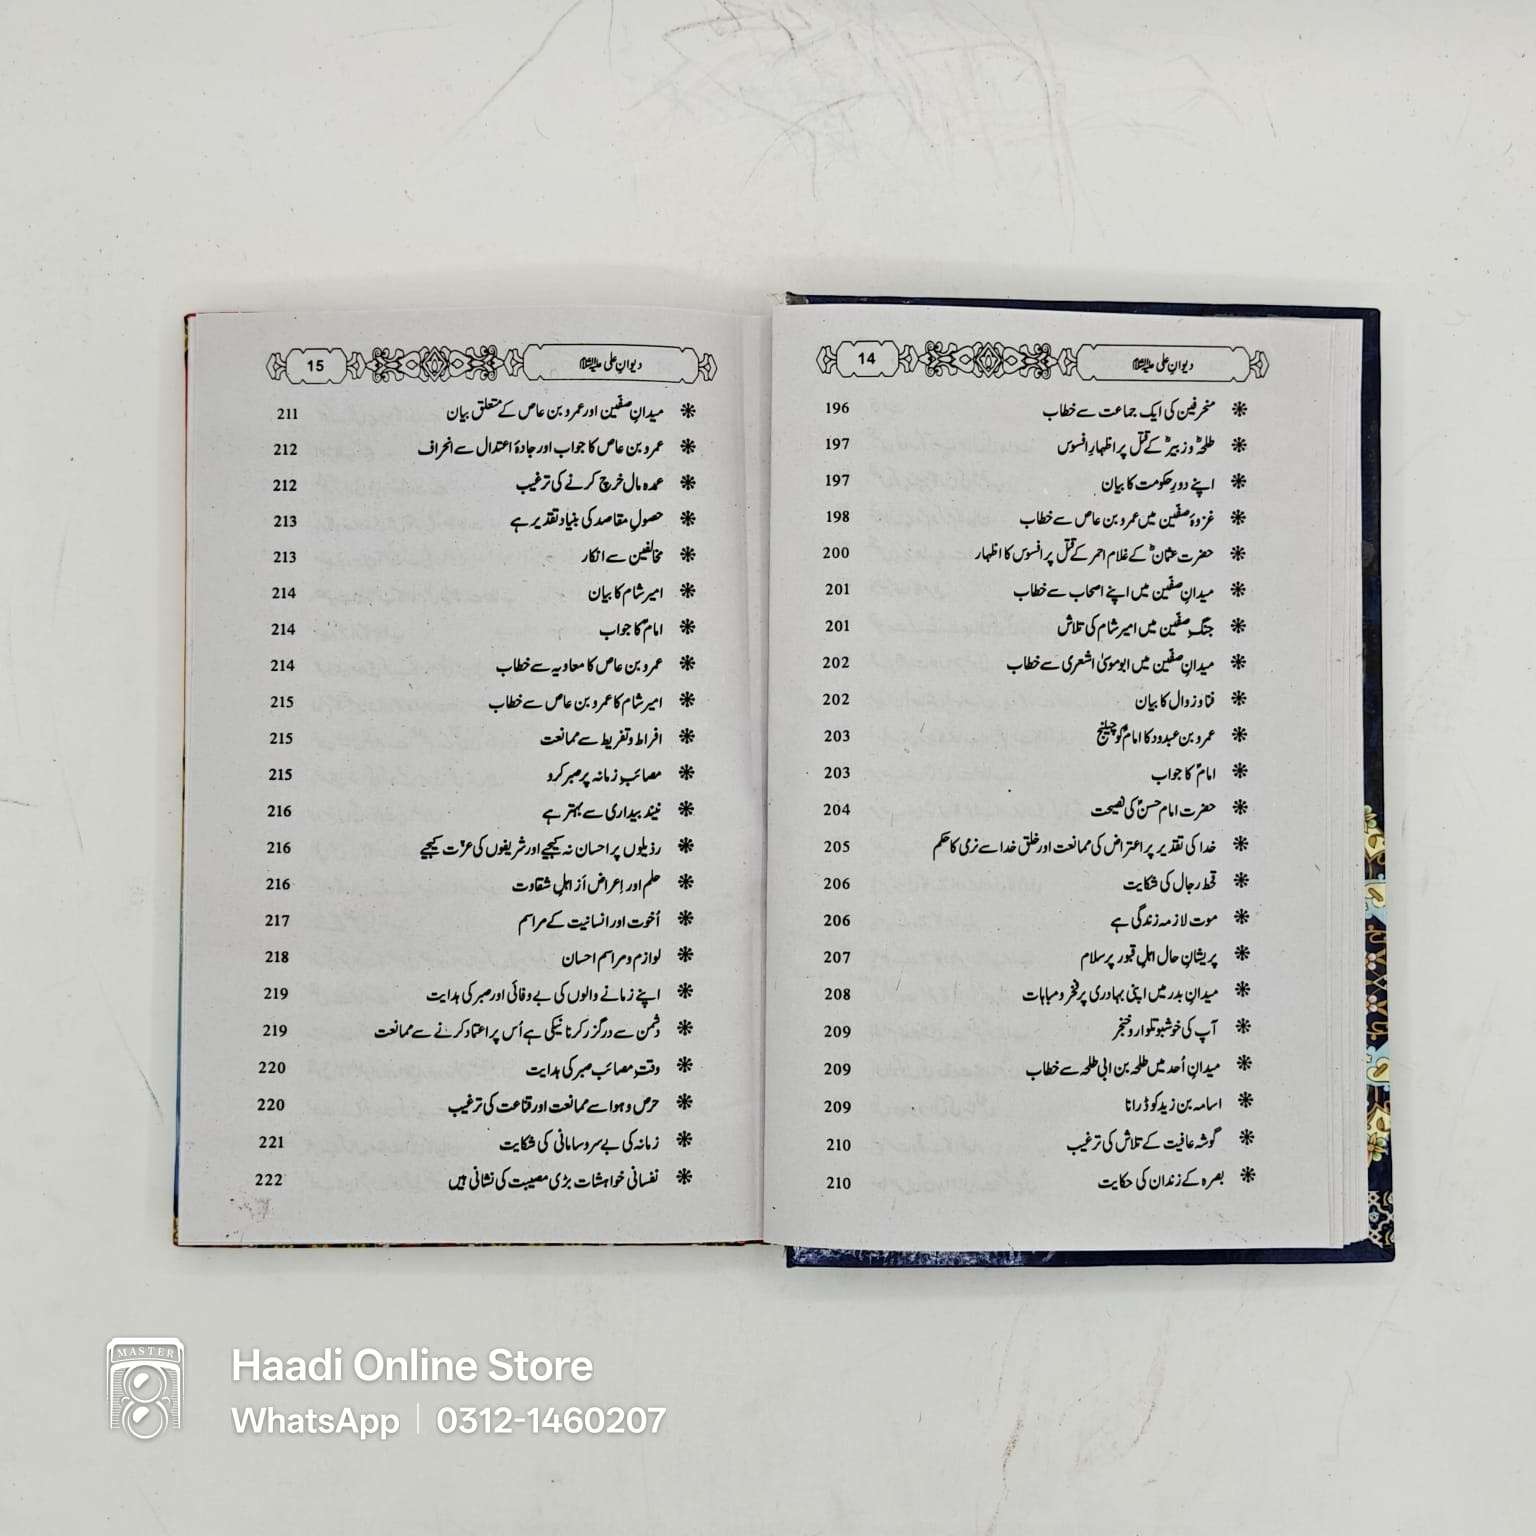 دیوانِ علی علیہ السلام 14
منحرفین کی ایک جماعت سے خطاب 196
طلحہؓ و زبیرؓ کے قتل پر اظہارِ افسوس 197
اپنے دورِ حکومت کا بیان 197
غزوۂ صفّین میں عمرو بن عاص سے خطاب 198
حضرت عثمانؓ کے غلام احمر کے قتل پر افسوس کا اظہار 200
میدانِ صفّین میں اپنے اصحاب سے خطاب 201
جنگِ صفّین میں امیر شام کی تلاش 201
میدانِ صفّین میں ابو موسیٰ اشعری سے خطاب 202
فنا و زوال کا بیان 202
عمرو بن عبدود کا امامؑ کو چیلنج 203
امامؑ کا جواب 203
حضرت امام حسنؑ کی نصیحت 204
خدا کی تقدیر پر اعتراض کی ممانعت اور خلق خدا سے نرمی کا حکم 205
قحط رجال کی شکایت 206
موت لازمہ زندگی ہے 206
پریشانِ حال اہلِ قبور پر سلام 207
میدانِ بدر میں اپنی بہادری پر فخر و مباہات 208
آپ کی خوشبو تلوار و خنجر 209
میدانِ اُحد میں طلحہ بن ابی طلحہ سے خطاب 209
اسامہ بن زید کو ڈرانا 209
گوشہ عافیت کے تلاش کی ترغیب 210
بصرہ کے زندان کی حکایت 210
دیوانِ علی علیہ السلام 15
میدانِ صفّین اور عمرو بن عاص کے متعلق بیان 211
عمرو بن عاص کا جواب اور جادۂ اعتدال سے انحراف 212
عمدہ مال خرچ کرنے کی ترغیب 212
حصولِ مقاصد کی بنیاد تقدیر ہے 213
مخالفین سے انکار 213
امیر شام کا بیان 214
امامؑ کا جواب 214
عمرو بن عاص کا معاویہ سے خطاب 214
امیر شام کا عمرو بن عاص سے خطاب 215
افراط و تفریط سے ممانعت 215
مصائبِ زمانہ پر صبر کرو 215
نیند بیداری سے بہتر ہے 216
رذیلوں پر احسان نہ کیجیے اور شریفوں کی عزّت کیجیے 216
حلم اور اِعراض اَز اہلِ شقاوت 216
اُخوت اور انسانیت کے مراسم 217
لوازم و مراسم احسان 218
اپنے زمانے والوں کی بے وفائی اور صبر کی ہدایت 219
دشمن سے درگزر کرنا نیکی ہے اُس پر اعتماد کرنے سے ممانعت 219
وقتِ مصائب صبر کی ہدایت 220
حرص و ہوا سے ممانعت اور قناعت کی ترغیب 220
زمانہ کی بے سر و سامانی کی شکایت 221
نفسانی خواہشات بڑی مصیبت کی نشانی ہیں 222
MASTER
Haadi Online Store
WhatsApp | 0312-1460207